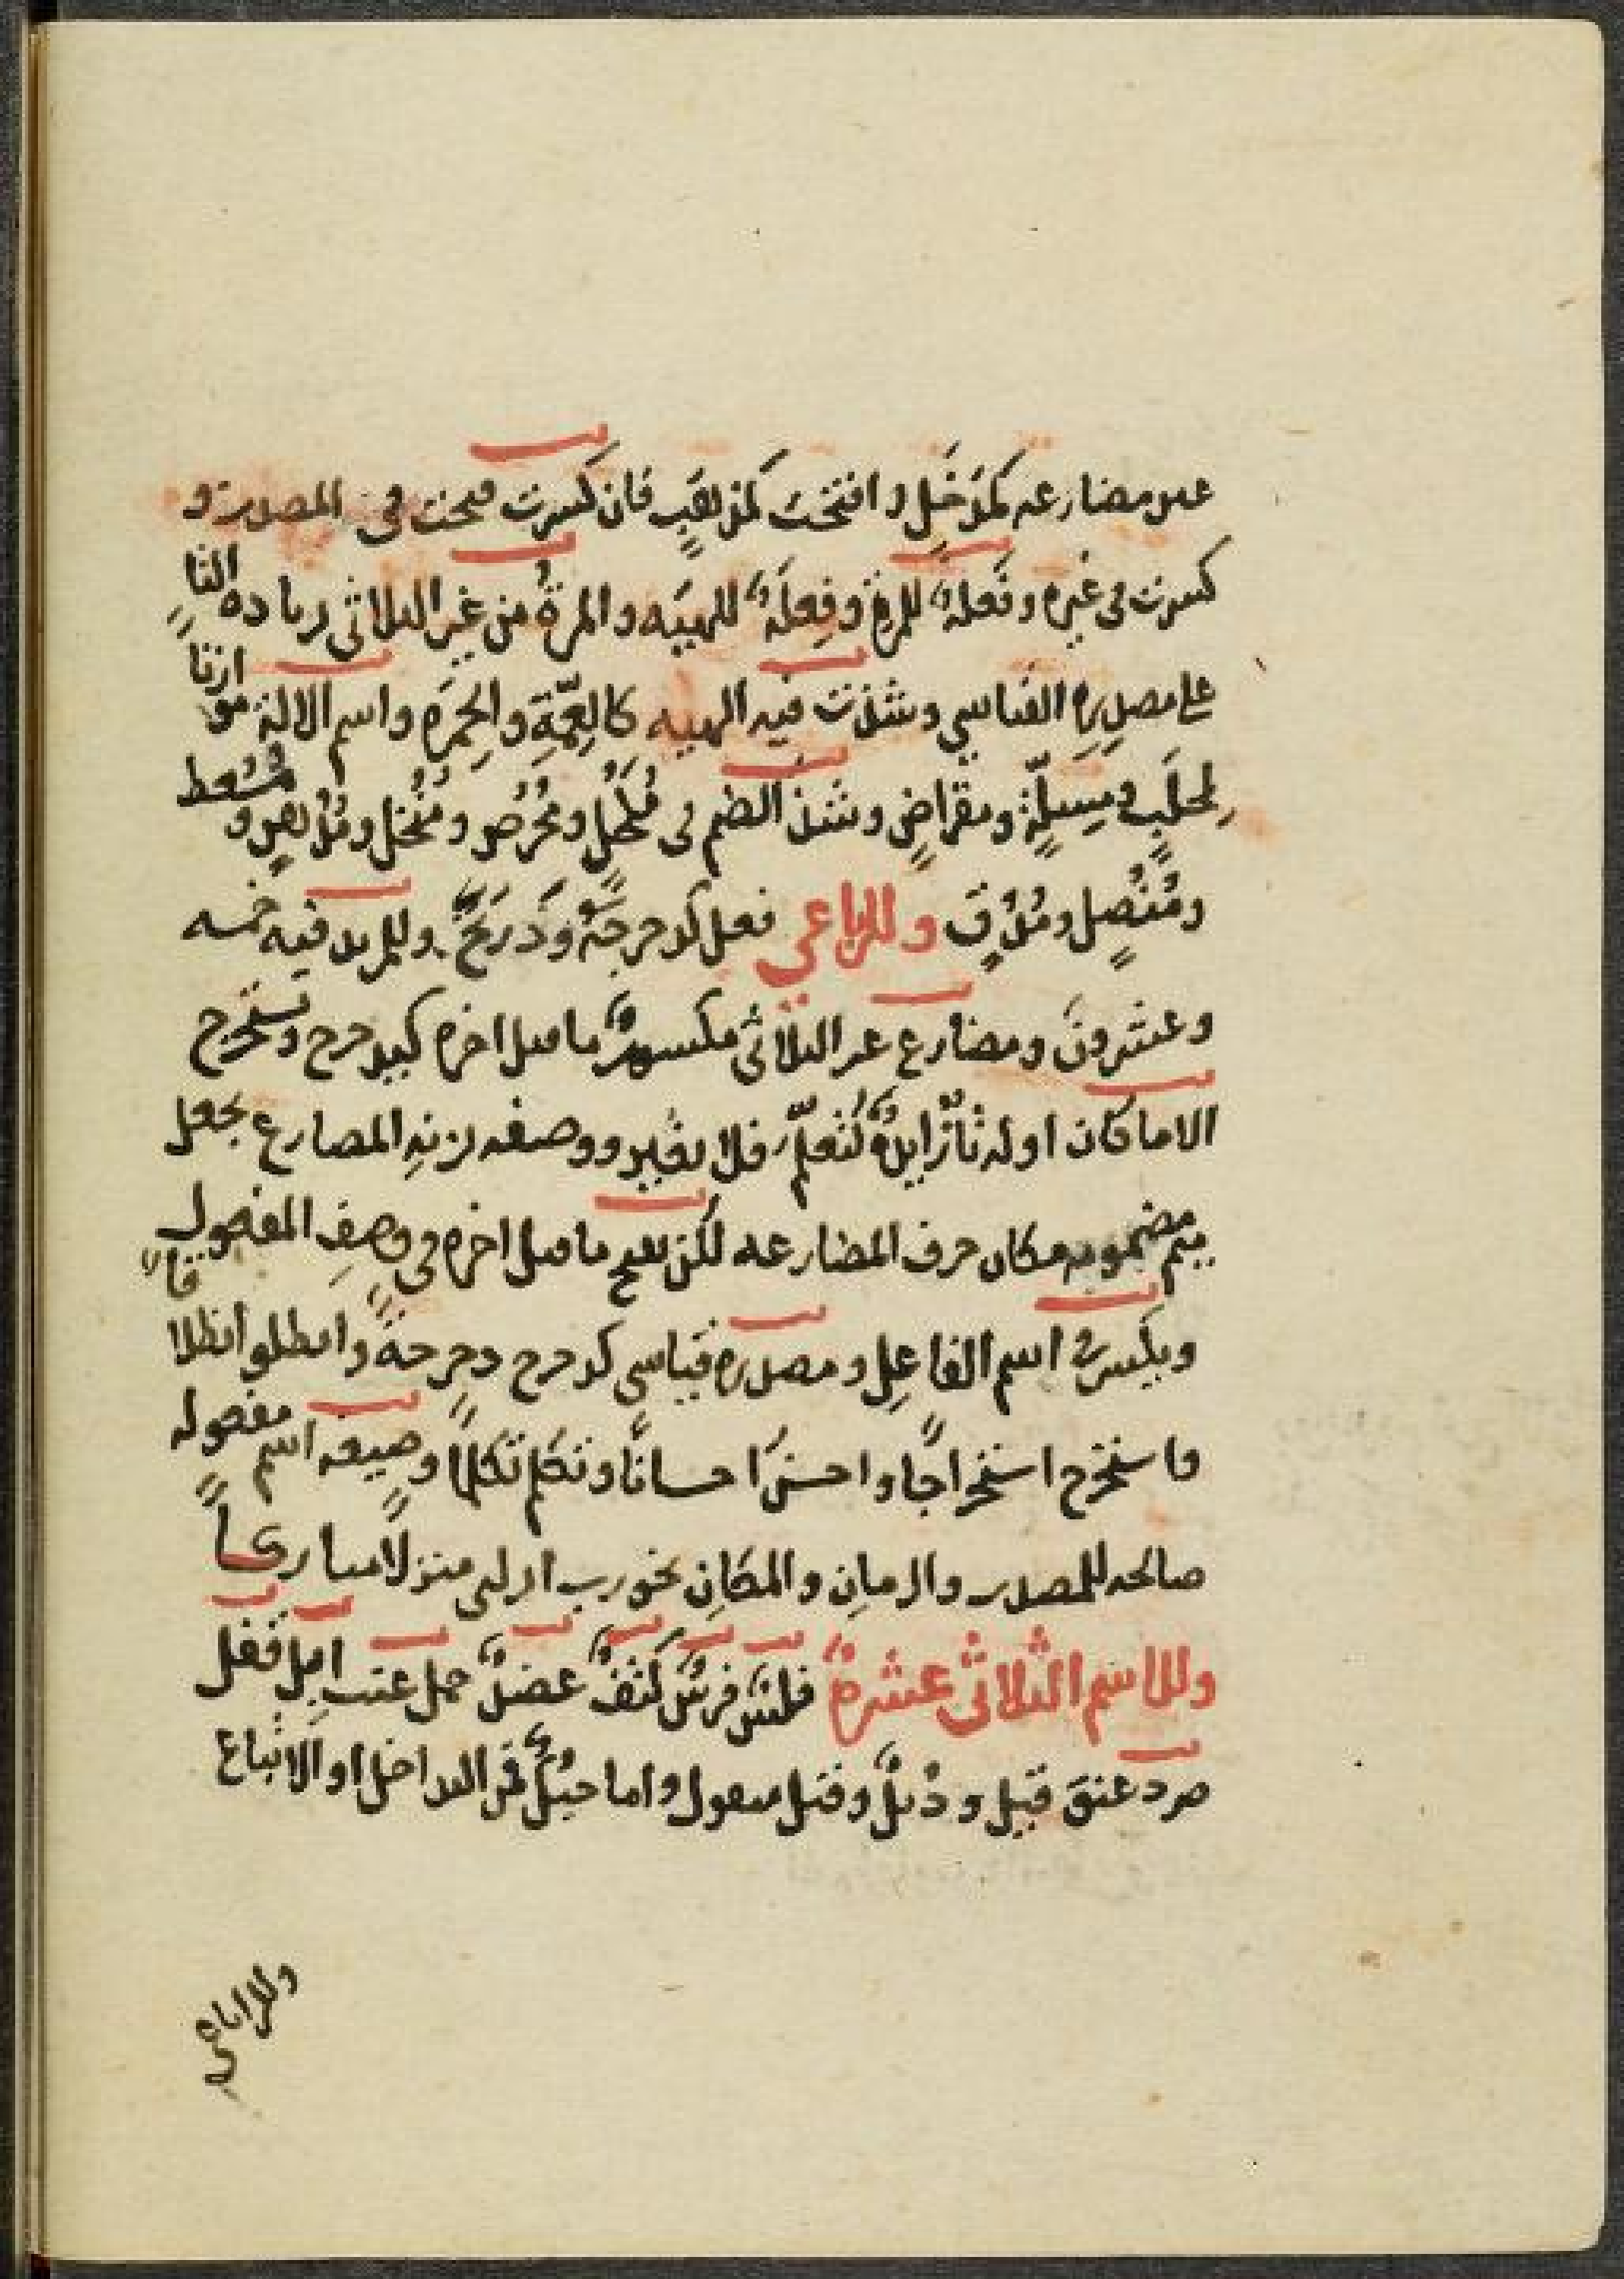 عين مضارعه كمدخل او افتتحت كمذهب فان كسرت فتحت فى المصدر و
كسرت فى غيره وفعلة للمرة وفعلة للهيئه والمرة من غير الثلاثى بزيادة التا
على مصدره القياسي وشذت فيه الهييه كالعمة والخمره واسم الالة موازنا
لمحلب ومسلة ومقراض وشذ الضم فى مكحل ومحرض ومنخل ومدهن و مسعط
ومنصل ومدق وللرباعي فعل كدحرجة ودربح وللمزيد فيه خمسه
وعشرون ومضارع غير الثلاثى مكسور ما قبل اخره كيدحرج وتستخرج
الا ما كان اوله تا زايدة كتعلم فلا يغير ووصفه بزنة المضارع بجعل
ميم مضمومه مكان حرف المضارعه لكن يفتح ما قبل اخره فى وصف المفعول
ويكسر فى اسم الفاعل ومصدره قياسى كدحرج دحرجة وانطلق انطلاقا
واستخرج استخراجا واحسن احسانا وتكلم تكلما وصيغه اسم مفعوله
صالحه للمصدر والزمان والمكان نحو رب انزلنى منزلا مباركا
وللاسم الثلاثى عشرة فلس فرس كتف عضد حمل عنب ابل قفل
صرد عنق قيل ودئل وقيل منقول واما حبك فمن التداخل او الاتباع
وللرباعى